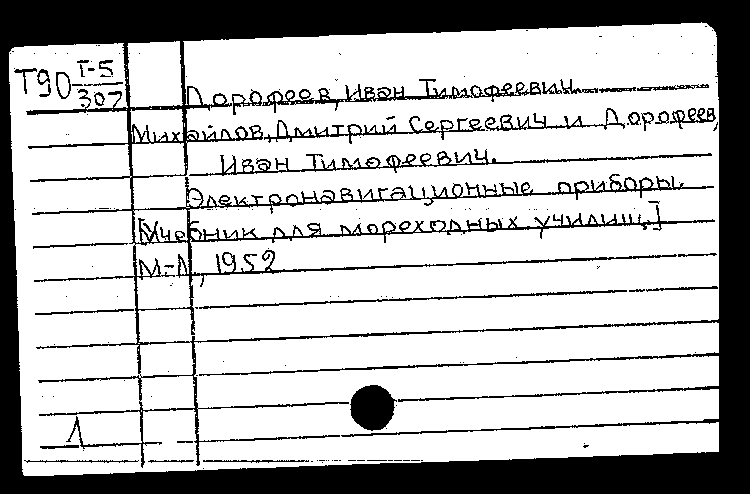 Т90 Т-5
307
Дорофеев, Иван Тимофеевич
Михайлов, Дмитрий Сергеевич и Дорофеев,
Иван Тимофеевич.
Электронавигационные приборы.
[Учебник для мореходных училищ.]
М-Л, 1952
1